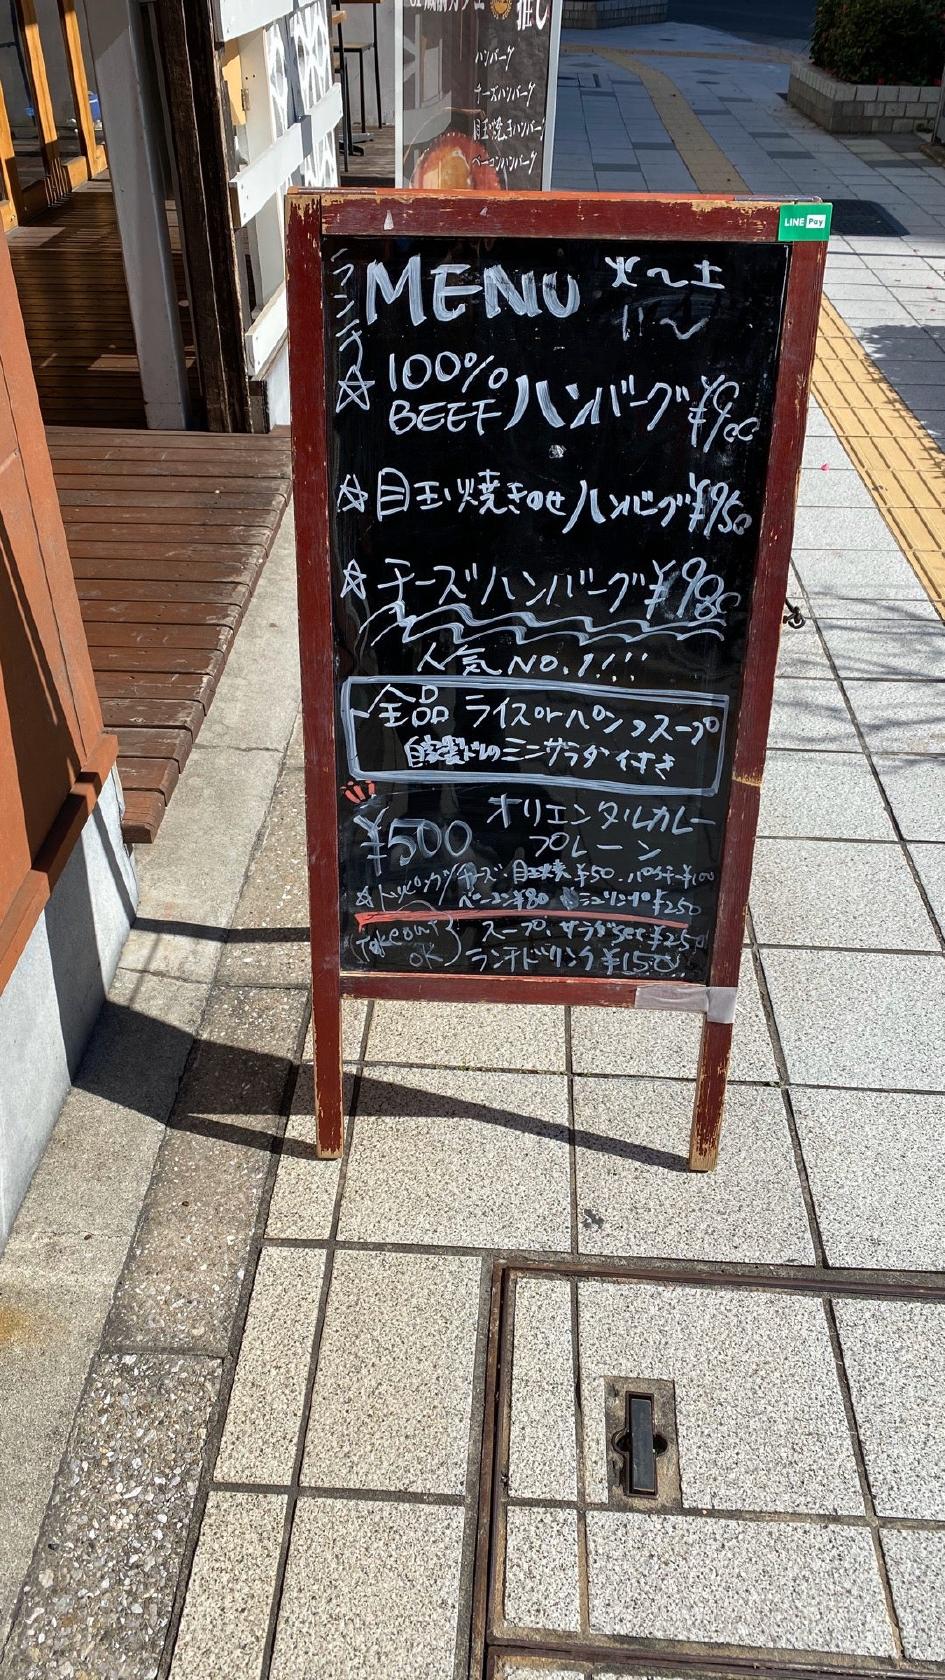 推し
ハンバーグ
チーズハンバーグ
目玉焼きハンバーグ
ベーコンハンバーグ
LINE Pay
ランチ MENU 火〜土
11〜
☆ 100% BEEF ハンバーグ ¥900
☆ 目玉焼きのせハンバーグ ¥950
☆ チーズハンバーグ ¥980
人気 NO.1!!!
全品 ライス or パン、スープ
自家製ドレのミニサラダ付き
¥500 オリエンタルカレー
プレーン
☆ トッピング チーズ・目玉焼 ¥50・パクチー ¥100
ベーコン ¥80 シュリンプ ¥250
Takeout OK スープ、サラダset ¥250
ランチドリンク ¥150